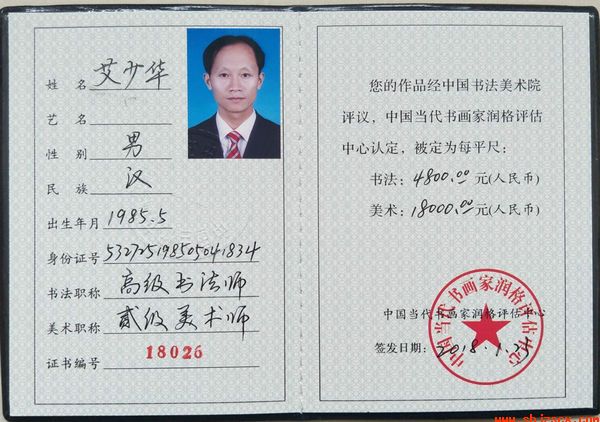 姓 名 艾少华
艺 名
性 别 男
民 族 汉
出生年月 1985.5
身份证号 532725198505041834
书法职称 高级书法师
美术职称 贰级美术师
证书编号 18026
您的作品经中国书法美术院
评议，中国当代书画家润格评估
中心认定，被定为每平尺：
书法：4800.00元(人民币)
美术：18000.00元(人民币)
中国当代书画家润格评估中心
中国当代书画家润格评估中心
签发日期：2018.1.23